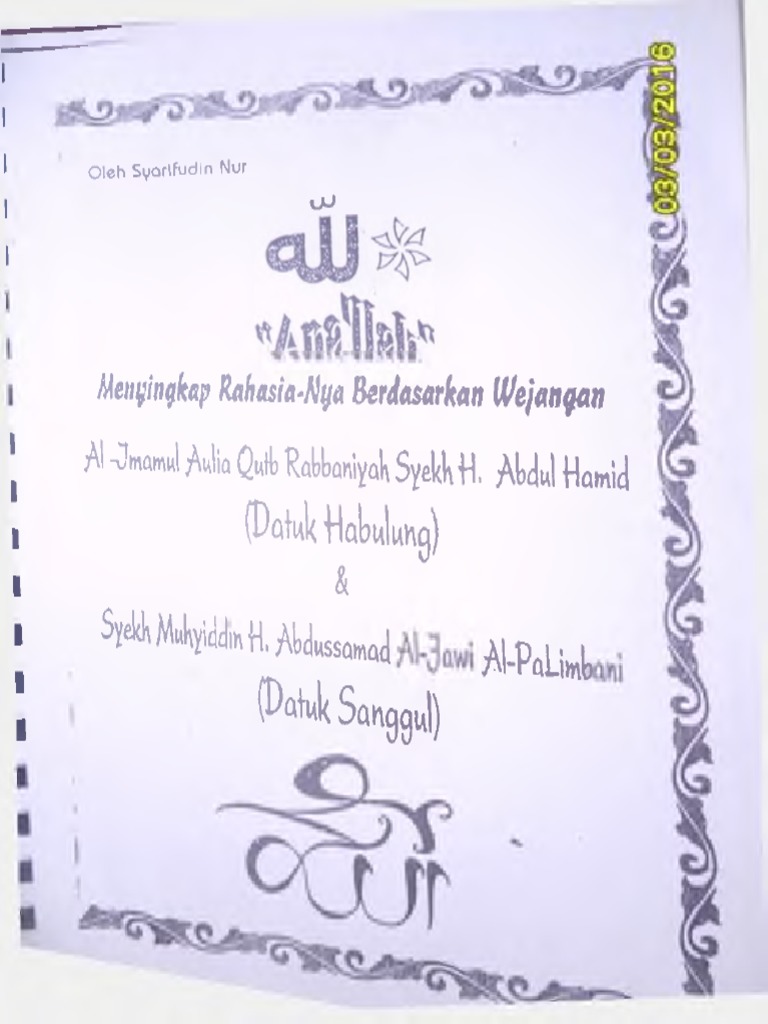 03/03/2016
Oleh Syarifudin Nur
الله
"Ana'llah"
Menyingkap Rahasia-Nya Berdasarkan Wejangan
Al-Imamul Aulia Qutb Rabbaniyah Syekh H. Abdul Hamid
(Datuk Habulung)
&
Syekh Muhyiddin H. Abdussamad Al-Jawi Al-PaLimbani
(Datuk Sanggul)